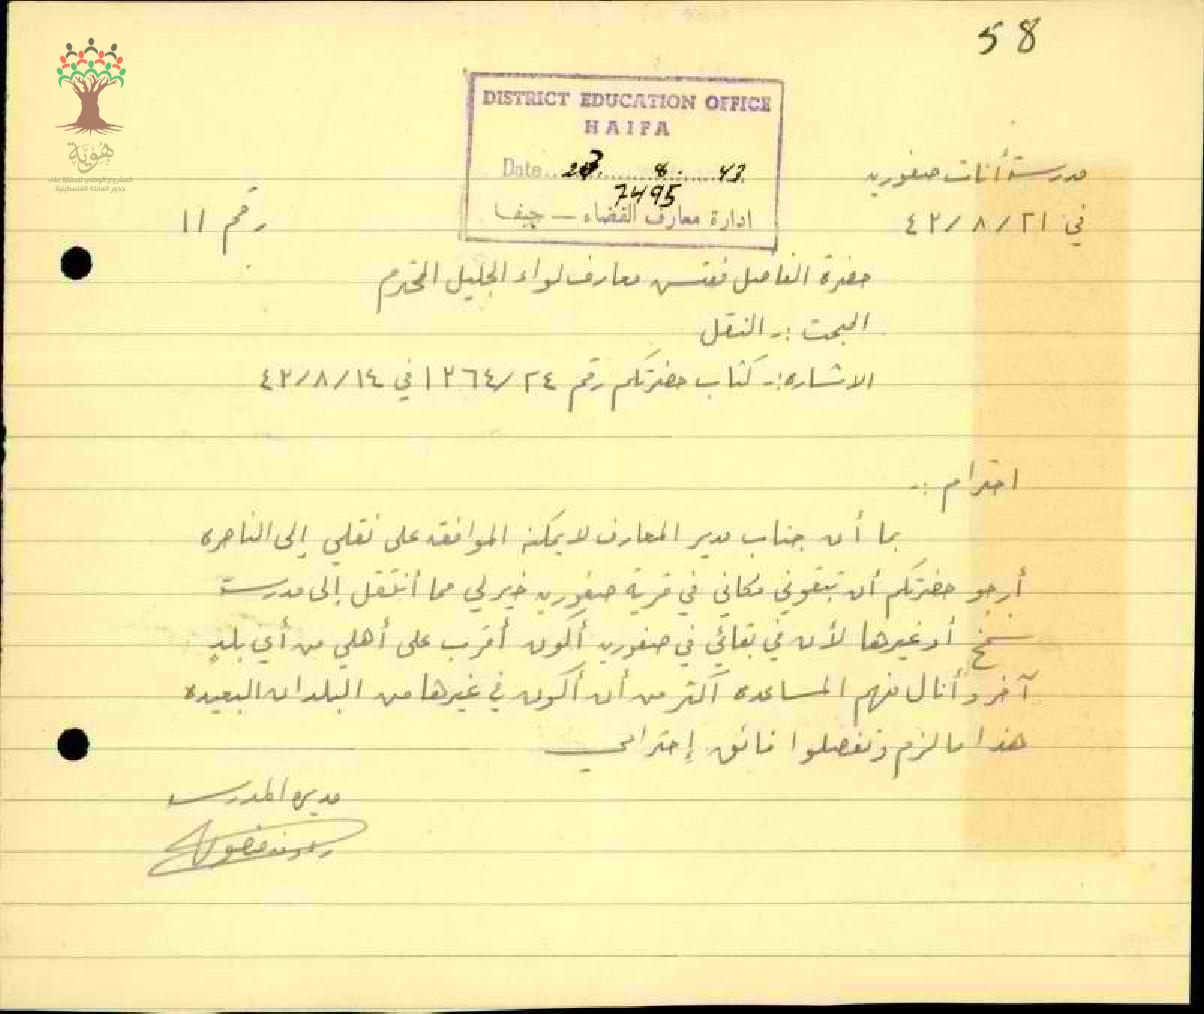 58
هُوِيَّة
المشروع الوطني للحفاظ على
جذور العائلة الفلسطينية
DISTRICT EDUCATION OFFICE
HAIFA
Date 23 8. 43
7495
ادارة معارف القضاء — حيفا
مدرسة أناث صفوريه
في ٢١/٨/٤٣
رقم ١١
حضرة الفاضل مفتش معارف لواء الجليل المحترم
البحث :ـ النقل
الاشاره :ـ كتاب حضرتكم رقم ١٢٦٤/٢٤ في ٤٣/٨/١٤
احترام :ـ
بما أن جناب مدير المعارف لا يمكنه الموافقه على نقلي إلى الناصره
أرجو حضرتكم أن تبقوني مكاني في قرية صفوريه خير لي مما أنتقل إلى مدرسة
سمخ أو غيرها لأن في بقائي في صفوريه أكون أقرب على أهلي من أي بلدٍ
آخر وأنال منهم المساعده أكثر من أن أكون في غيرها من البلدان البعيده
هذا ما لزم وتفضلوا فائق إحترامي
مديرة المدرسه